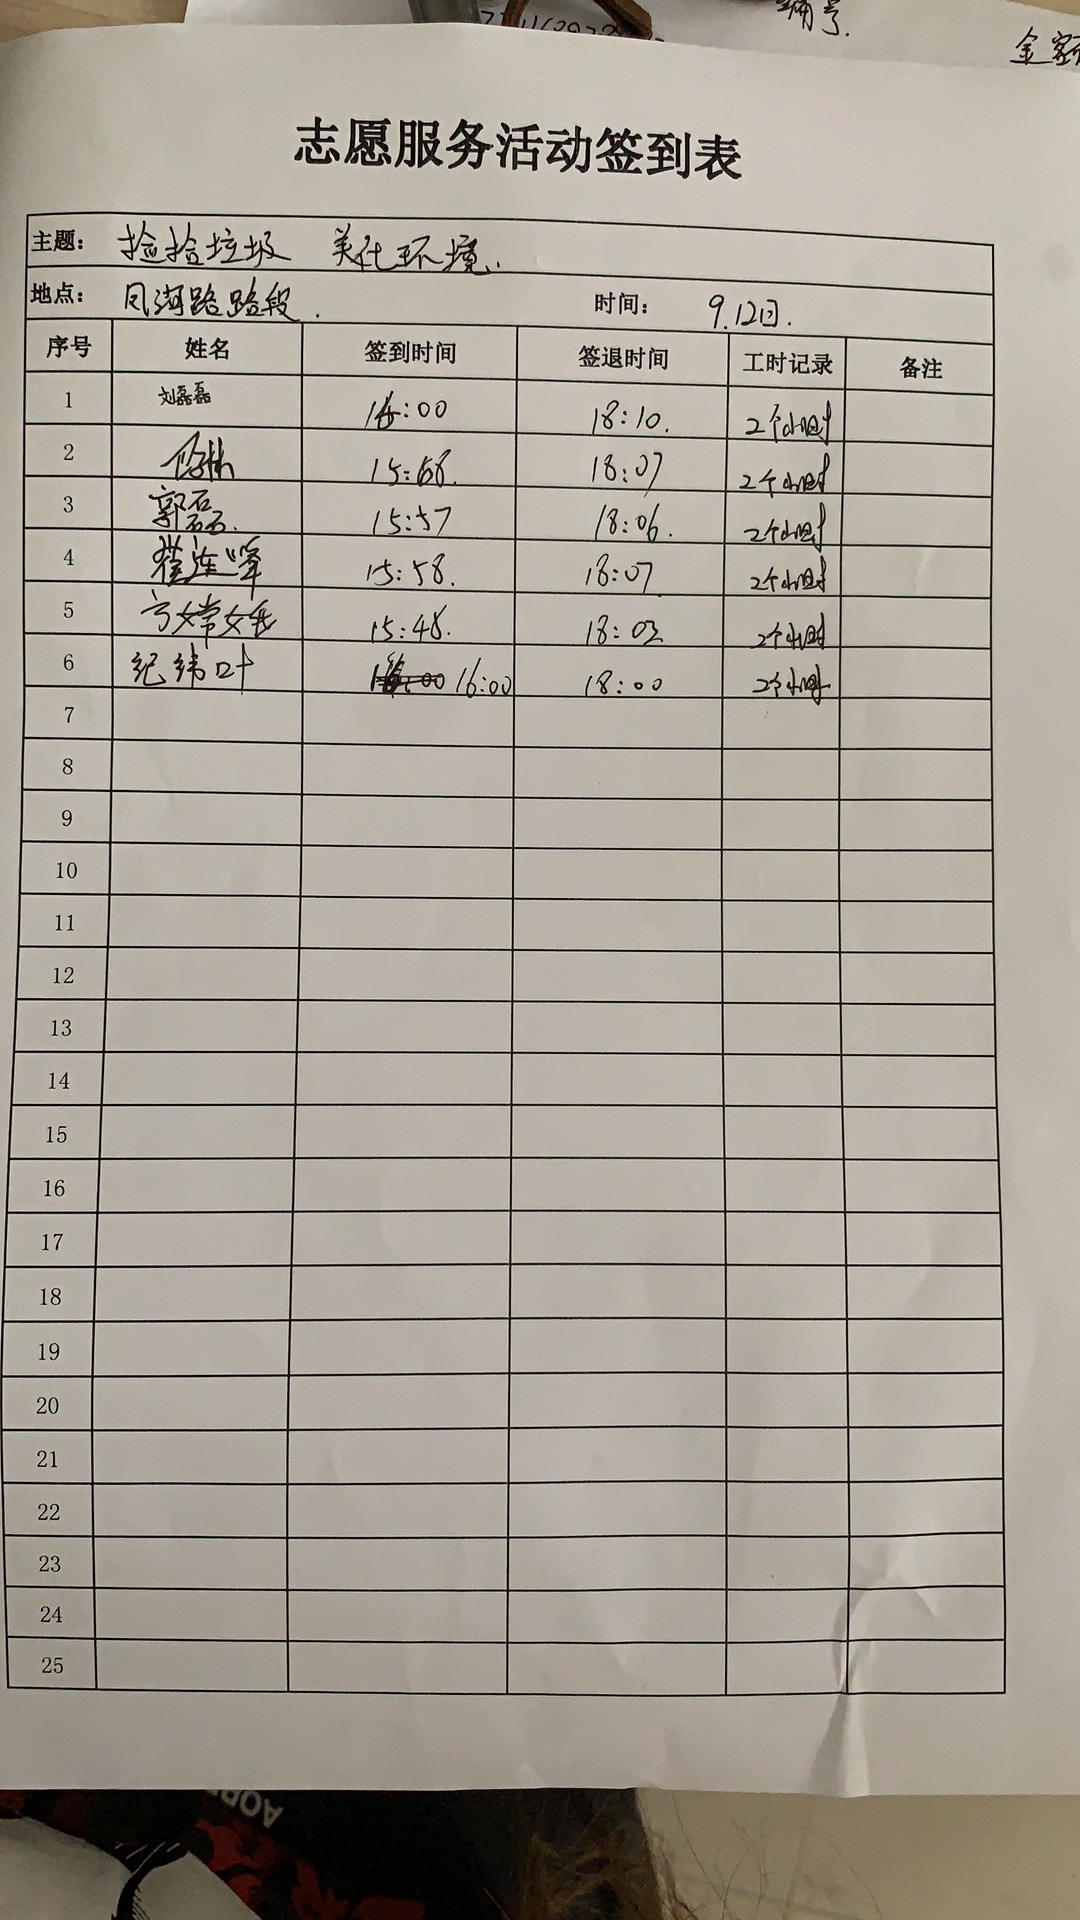 金额
志愿服务活动签到表
主题: 捡拾垃圾 美化环境.
地点: 凤河路路段. 时间: 9.12日.
序号 姓名 签到时间 签退时间 工时记录 备注
1 刘磊磊 16:00 18:10. 2个小时
2 18:07 2个小时
3 郭磊. 15:57 18:06. 2个小时
4 15:58. 18:07 2个小时
5 15:48. 18:03 2个小时
6 纪纬叶 16:00 18:00 2个小时
7
8
9
10
11
12
13
14
15
16
17
18
19
20
21
22
23
24
25